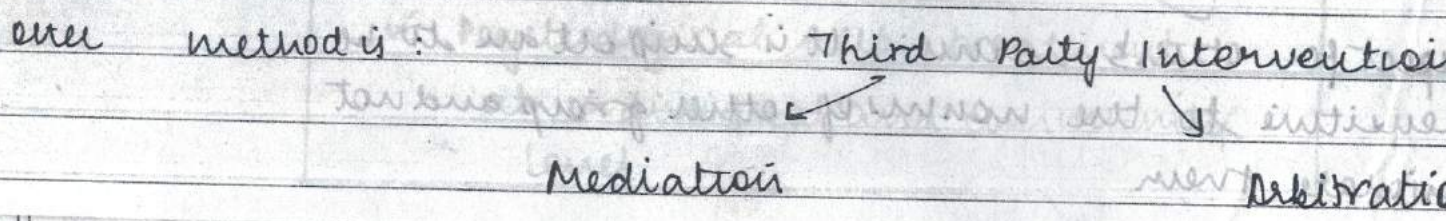 over method is : Third Party Interventio
Mediation Arbitratio